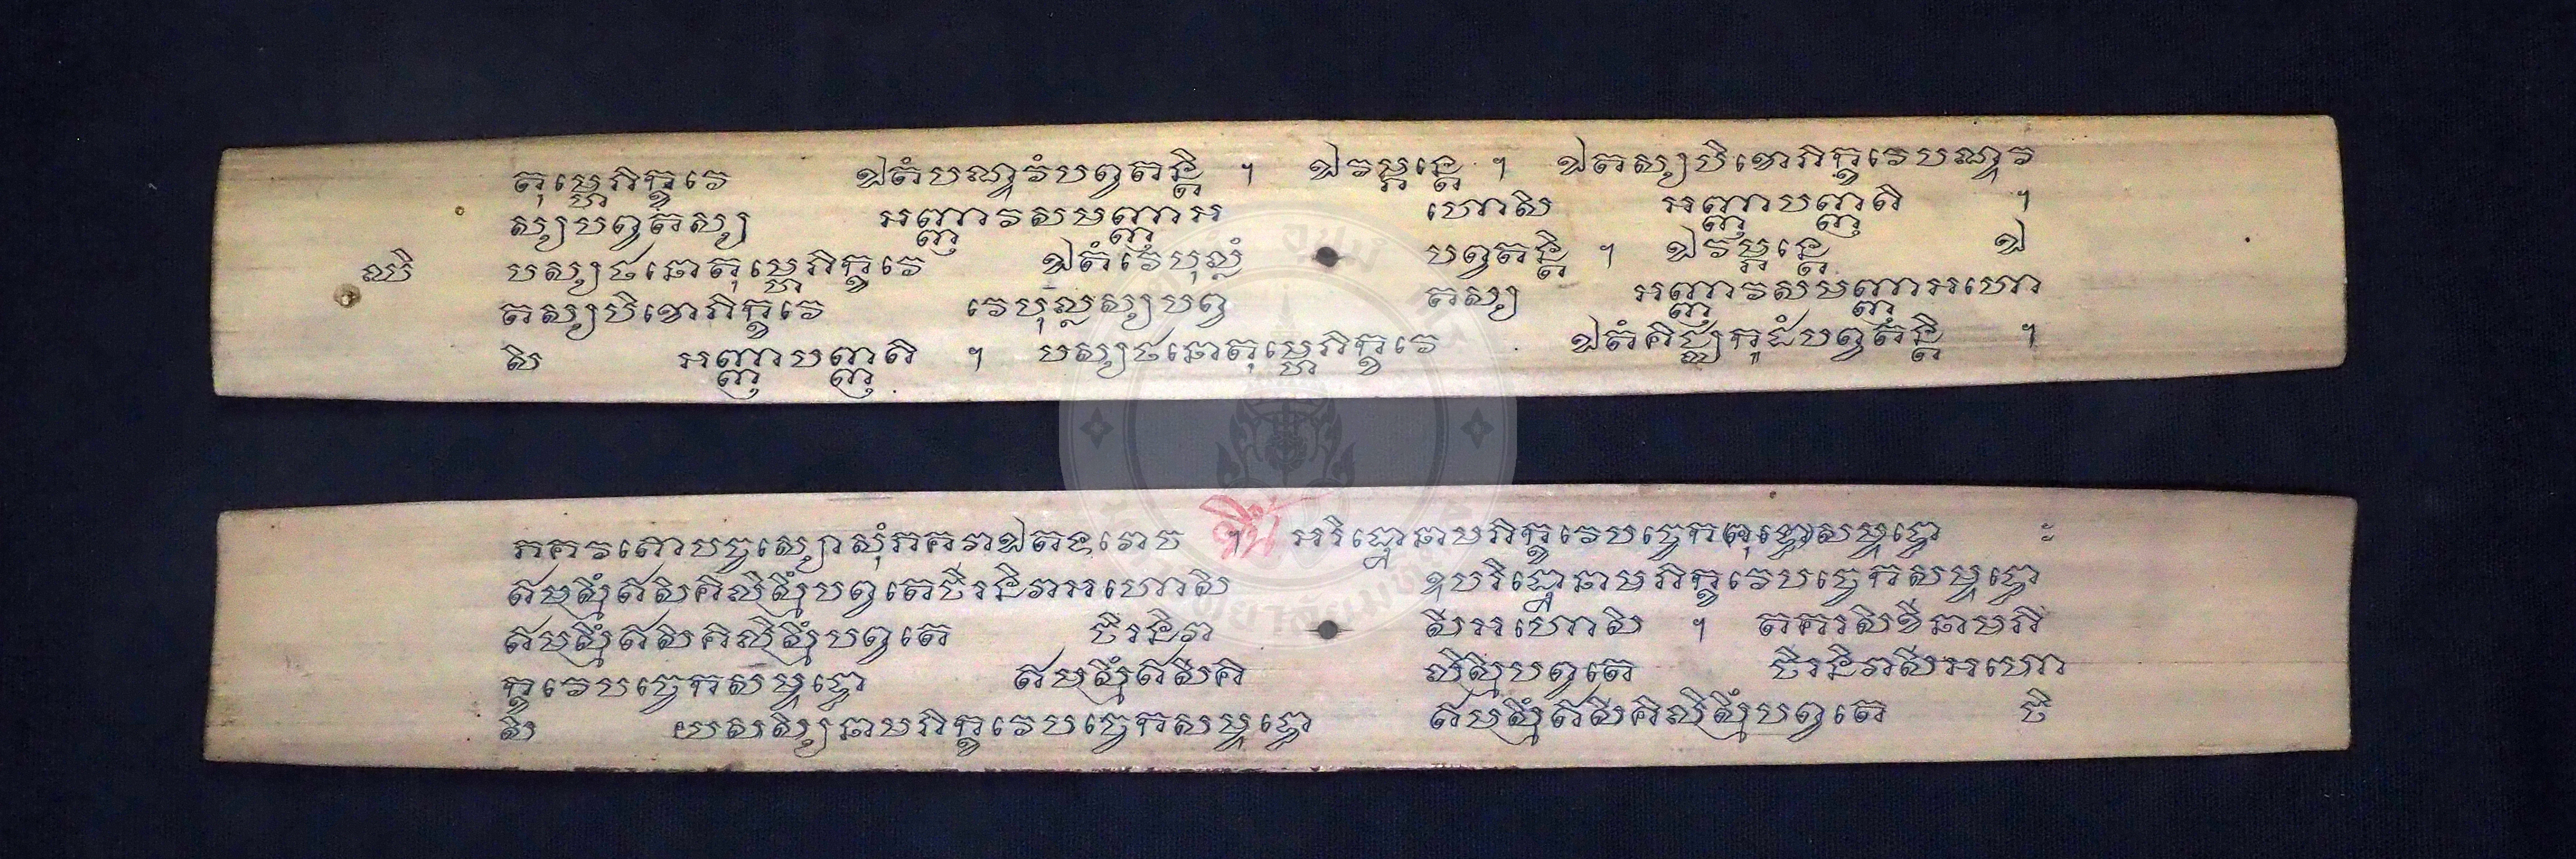 តុម្ហេភិក្ខវេ ឯតំបណ្ឌវំបព្វតន្តិ ។ ឯវម្ភន្តេ ។ ឯតស្សបិខោភិក្ខវេបណ្ឌវ
ស្សបព្វតស្ស អញ្ញាវសមញ្ញាអ ហោសិ អញ្ញាបញ្ញតិ ។
ឈិ បស្សថនោតុម្ហេភិក្ខវេ ឯតំវេបុល្លំ បព្វតន្តិ ។ ឯវម្ភន្តេ ឯ
តស្សបិខោភិក្ខវេ វេបុល្លស្សបព្វ តស្ស អញ្ញាវសមញ្ញាអហោ
សិ អញ្ញាបញ្ញតិ ។ បស្សថនោតុម្ហេភិក្ខវេ ឯតំគិជ្ឈកូដំបព្វតន្តិ ។
ភគវតោបច្ចស្សោសុំភគវាឯតទវោច ។ អរិដ្ឋោនាមភិក្ខវេបច្ចេកពុទ្ធោសម្ពុទ្ធោ ៈ
ឥមស្មិំឥសិគិលិស្មិំបព្វតេចិរនិវាអហោសិ ឧបរិដ្ឋោនាមភិក្ខវេបច្ចេកសម្ពុទ្ធោ
ឥមស្មិំឥសិគិលិស្មិំបព្វតេ ចិរនិវា សីអហោសិ ។ តគរសិខីនាមភិ
ក្ខវេបច្ចេកសម្ពុទ្ធោ ឥមស្មិំឥសិគិ លិស្មិំបព្វតេ ចិរនិវាសីអហោ
សិ យសស្សិនាមភិក្ខវេបច្ចេកសម្ពុទ្ធោ ឥមស្មិំឥសិគិលិស្មិំបព្វតេ ចិ